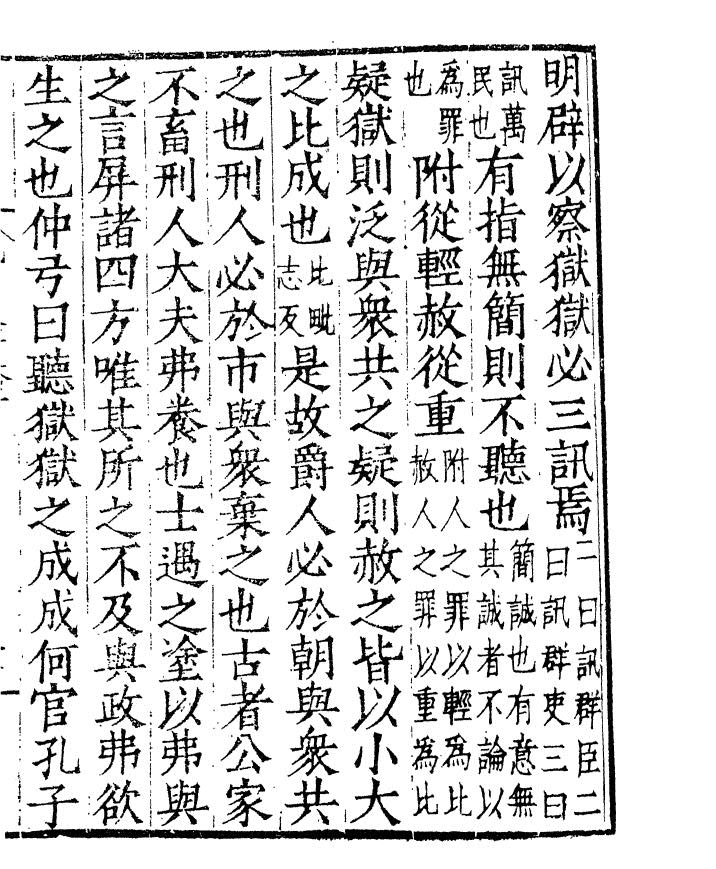 明辟以察獄獄必三訊焉一曰訊群臣二曰訊群吏三曰
訊萬民也有指無簡則不聽也簡誠也有意無其誠者不論以
為罪也附從輕赦從重附人之罪以輕為比赦人之罪以重為比
疑獄則泛與衆共之疑則赦之皆以小大
之比成也比毗志反是故爵人必於朝與衆共
之也刑人必於市與衆棄之也古者公家
不畜刑人大夫弗養也士遇之塗以弗與
之言屏諸四方唯其所之不及與政弗欲
生之也仲弓曰聽獄獄之成成何官孔子